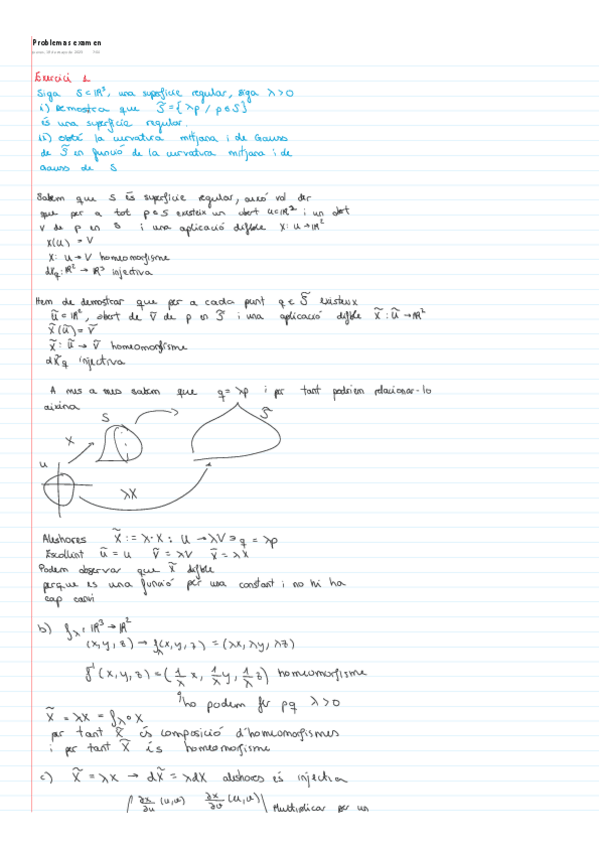 Problemas examen
Exercici 1
Siga S⊂ℝ³, una superficie regular, siga λ>0
i) Demostra que S̃={λp / p∈S}
és una superficie regular.
ii) obté la curvatura mitjana i de Gauss
de S̃ en funció de la curvatura mitjana i de
Gauss de S
Sabem que S és superficie regular, això vol dir
que per a tot p∈S existeix un obert U⊂ℝ² i un obert
V de p en S i una aplicació difble X: U→ℝ²
X(U) = V
X: U→V homeomorfisme
dXq: ℝ² → ℝ³ injectiva
Hem de demostrar que per a cada punt q∈S̃ existeux
ũ⊂ℝ², obert de Ṽ de p en S̃ i una aplicació difble X̃: ũ→ℝ²
X̃(ũ)=Ṽ
X̃: ũ → Ṽ homeomorfisme
dX̃q injectiva
A mes a mes sabem que q=λp i per tant podriem relacionar-lo
aixina
S
S̃
X
U
λX
Aleshores X̃:= λ·X: U →λV ∋ q = λp
Escollint ũ=u Ṽ=λV X̃=λX
Podem observar que X̃ difble
perque es una funció per una constant i no hi ha
cap canvi
b) fλ: ℝ³→ℝ²
(x,y,z)→fλ(x,y,z) = (λx, λy, λz)
f⁻¹(x,y,z)=(1/λ x, 1/λ y, 1/λ z) homeomorfisme
ho podem fer pq λ>0
X̃ = λX = fλ∘X
per tant X̃ és composició d'homeomorfismes
i per tant X̃ és homeomorfisme
c) X̃ = λx → dX̃ = λdX aleshores és injectiva
(∂x/∂u (u,v) ∂x/∂v (u,v)) Multiplicar per un